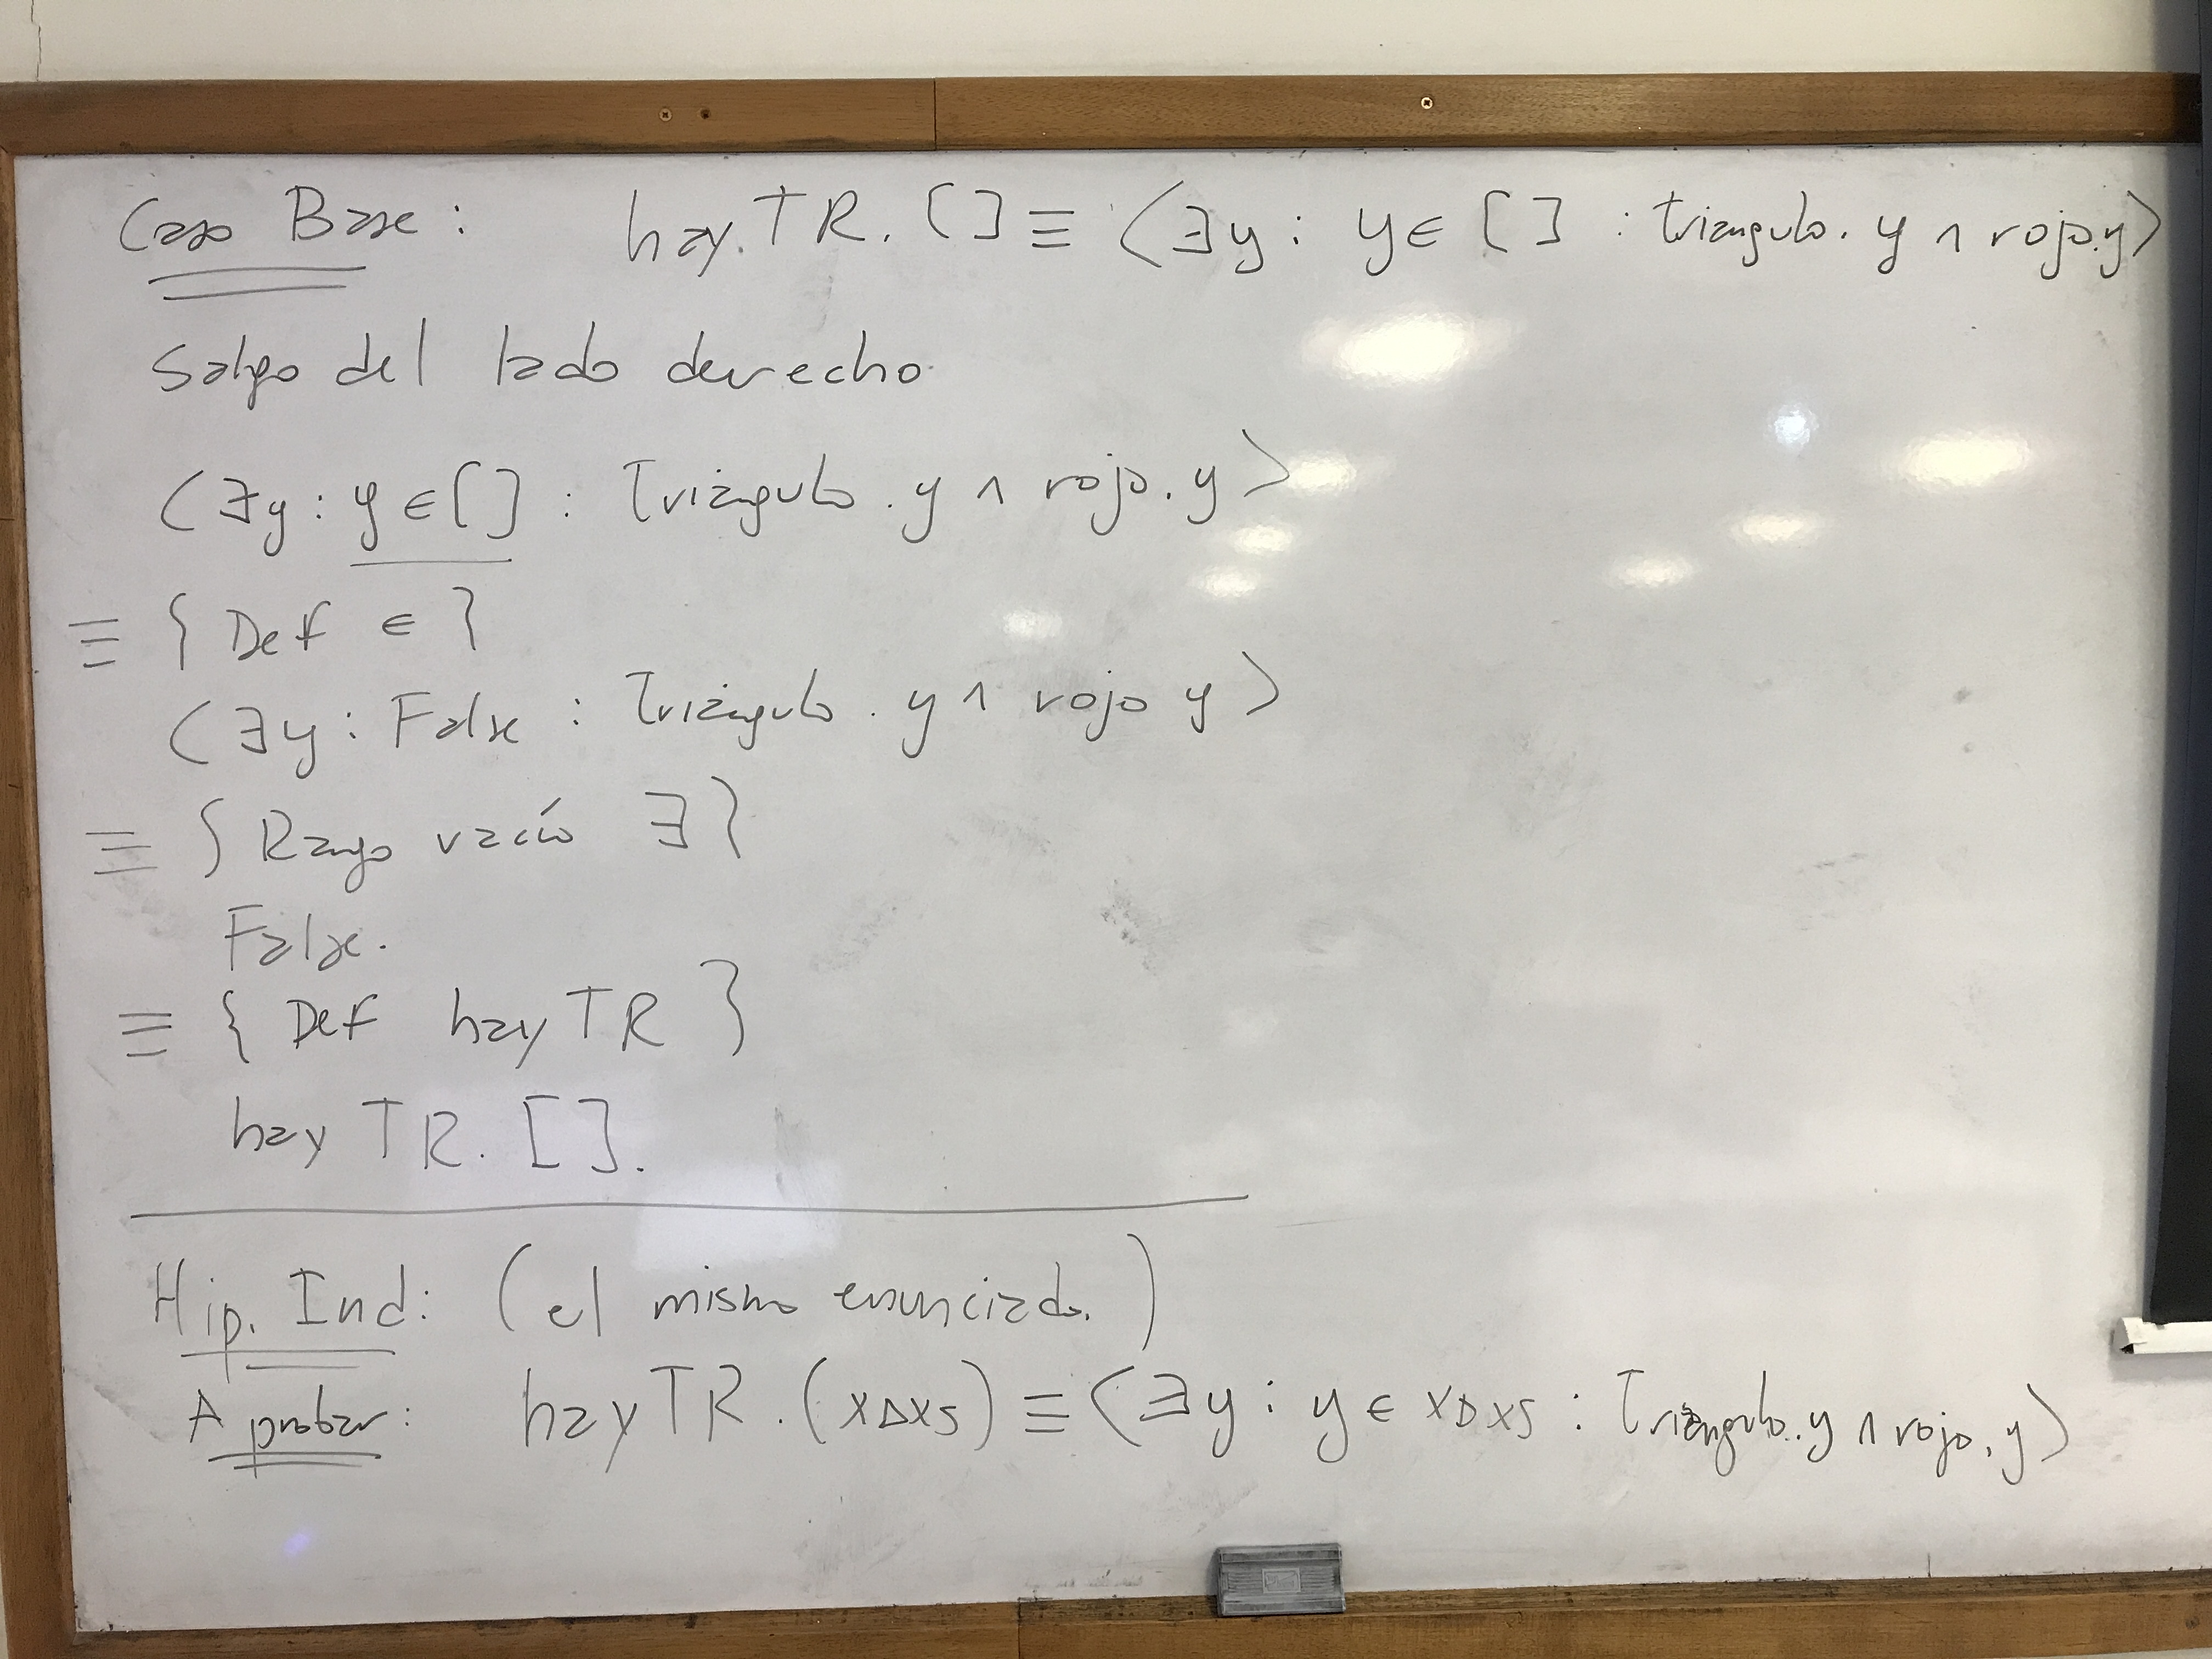 Caso Base: hay.TR.[] ≡ ⟨∃y : y ∈ [] : triangulo.y ∧ rojo.y⟩
Salgo del lado derecho.
⟨∃y : y ∈ [] : Triángulo.y ∧ rojo.y⟩
≡ { Def ∈ }
⟨∃y : False : Triángulo.y ∧ rojo y⟩
≡ { Rango vacío ∃ }
False.
≡ { Def hayTR }
hayTR.[].
Hip. Ind: (el mismo enunciado.)
A probar: hayTR.(x▹xs) ≡ ⟨∃y : y ∈ x▹xs : Triángulo.y ∧ rojo.y⟩